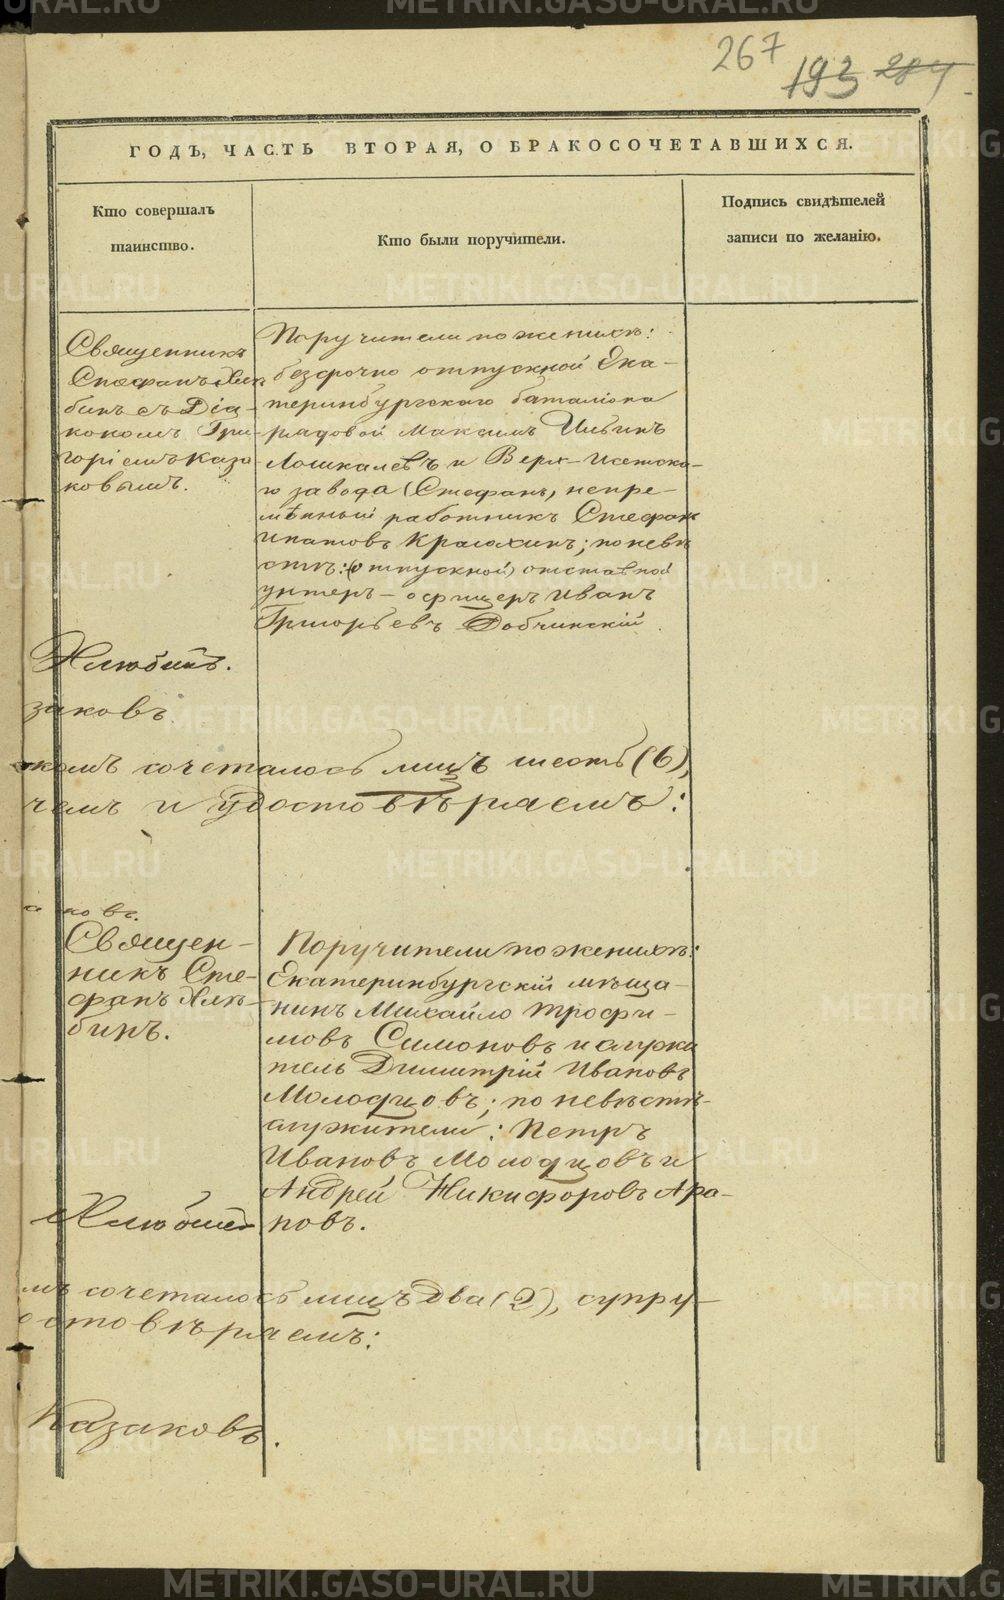 267
193 204
ГОДЪ, ЧАСТЬ ВТОРАЯ, О БРАКОСОЧЕТАВШИХСЯ.
Кто совершалъ
таинство.
Кто были поручители.
Подпись свидѣтелей
записи по желанію.
Священникъ
Стефанъ Хлю
бинъ съ Діа-
кономъ Гри-
горіемъ Каза
ковымъ.
Поручители по женихѣ:
безсрочно отпускной Ека-
теринбургскаго баталіона
рядовой Максимъ Ильинъ
Лошкаревъ и Верх-Исетска-
го завода (Стефанъ, непре-
мѣнный работникъ Стефан
Ипатовъ Крахинъ; по невѣ
стѣ: (отпускной) отставной
унтеръ-офицеръ Иванъ
Григорьевъ Добчинскій.
Хлюбинъ.
заковъ.
комъ сочеталось лицъ шесть (6),
чемъ и удостовѣряемъ:
ковъ.
Священ-
никъ Сте-
фанъ Хлю-
бинъ.
Поручители по женихѣ:
Екатеринбургскій мѣща-
нинъ Михайло Трофи-
мовъ Симоновъ и служи
тель Димитрій Ивановъ
Молодцовъ; по невѣстѣ-
служители: Петръ
Ивановъ Молодцовъ и
Андрей Никифоровъ Ара-
повъ.
Хлюбин
мъ сочеталось лицъ два (2), супру-
достовѣряемъ:
Казаковъ.
METRIKI.GASO-URAL.RU